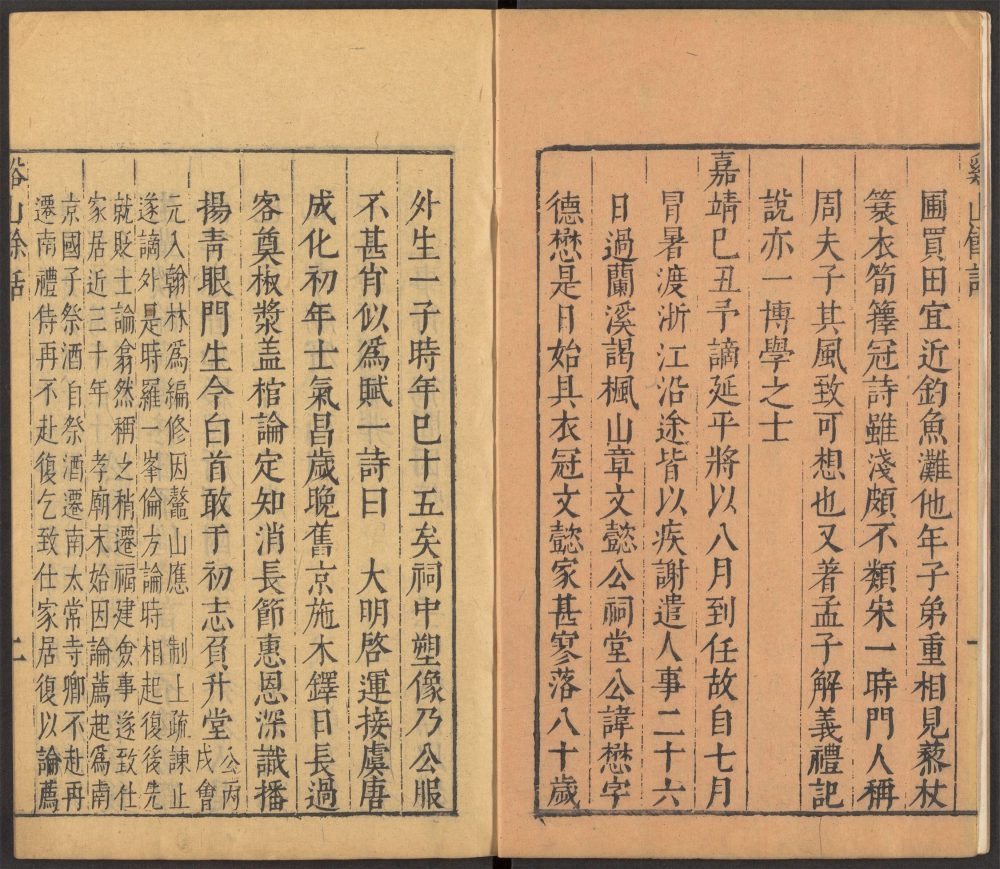 谿山餘話
圃買田宜近釣魚灘他年子弟重相見藜杖
蓑衣筍籜冠詩雖淺頗不類宋一時門人稱
周夫子其風致可想也又着孟子解義禮記
說亦一博學之士
嘉靖己丑予謫延平將以八月到任故自七月
冒暑渡浙江沿途皆以疾謝遣人事二十六
日過蘭溪謁楓山章文懿公祠堂公諱懋字
德懋是日始具衣冠文懿家甚寥落八十歲
外生一子時年已十五矣祠中塑像乃公服
不甚肖似爲賦一詩曰 大明啓運接虞唐
成化初年士氣昌歲晚舊京施木鐸日長過
客奠椒漿盖棺論定知消長節惠恩深識播
揚青眼門生今白首敢于初志負升堂公丙
戌會
元入翰林爲編修因鰲山應 制上疏諫止
遂謫外是時羅一峯倫方論時相起復後先
就貶士論翕然稱之稍遷福建僉事遂致仕
家居近三十年 孝廟末始因論薦起爲南
京國子祭酒自祭酒遷南太常寺卿不赴再
遷南禮侍再不赴復乞致仕家居復以論薦
谿山餘話
二